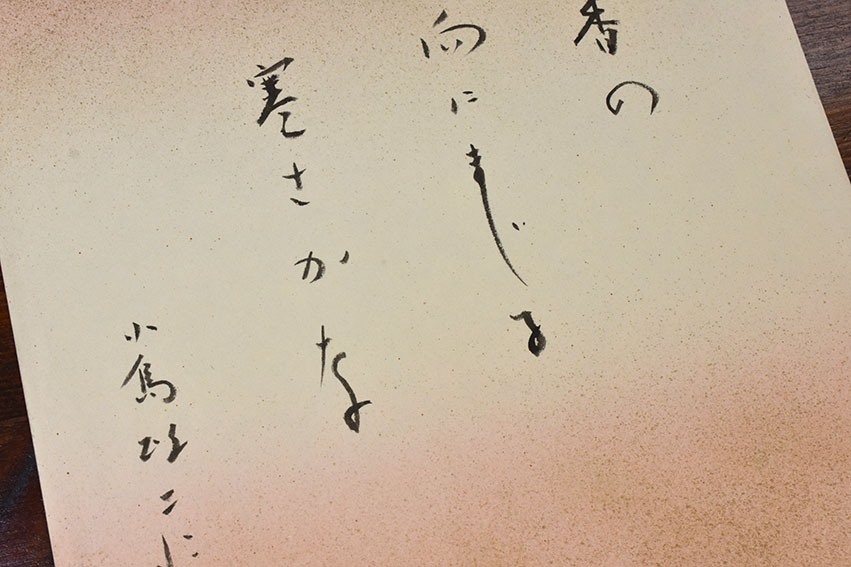 香の
にまじる
寒さかな
小島政二郎